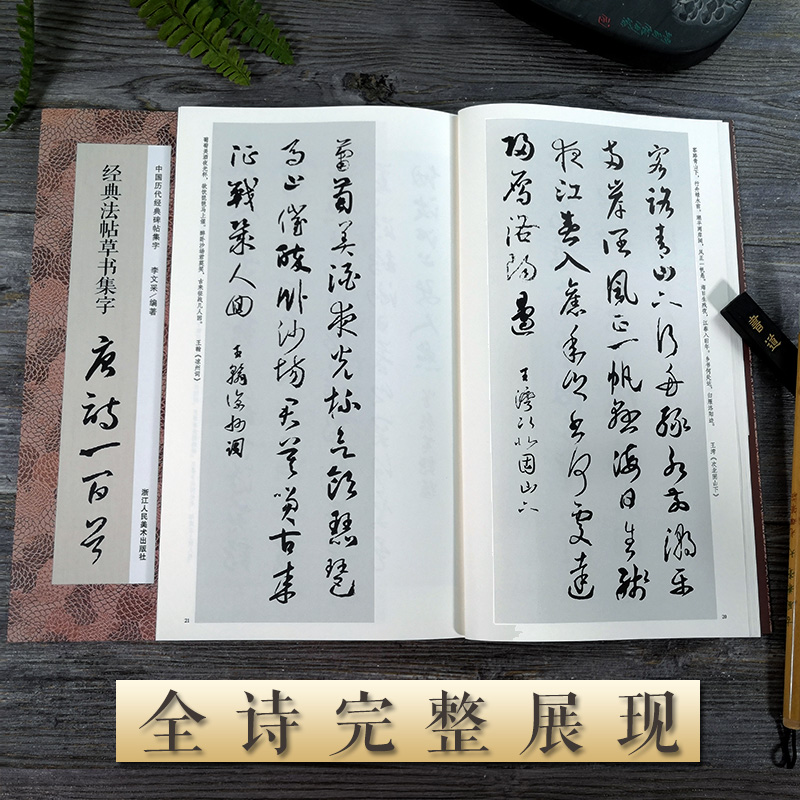 中国历代经典碑帖集字 李文采／编著
经典法帖草书集字
唐诗一百首
浙江人民美术出版社
客路青山下，行舟绿水前。潮平两岸阔，风正一帆悬。海日生残夜，江春入旧年。乡书何处达，归雁洛阳边。 王湾《次北固山下》
客路青山下行舟綠水前潮平
兩岸闊風正一帆懸海日生殘
夜江春入舊年鄉書何處達
歸雁洛陽邊
王灣次北固山下
20
葡萄美酒夜光杯欲飲琵琶
馬上催醉臥沙場君莫笑古來
征戰幾人回
王翰涼州詞
葡萄美酒夜光杯，欲饮琵琶马上催。醉卧沙场君莫笑，古来征战几人回。 王翰《凉州词》
21
書道
全诗完整展现